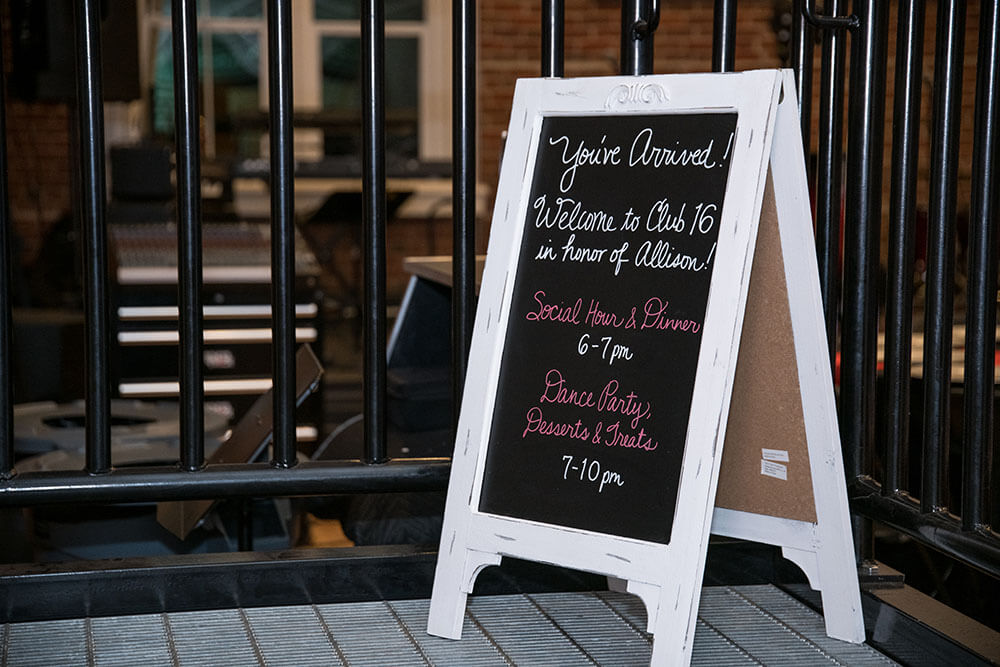 You've Arrived!
Welcome to Club 16
in honor of Allison!
Social Hour & Dinner
6-7pm
Dance Party,
Desserts & Treats
7-10pm